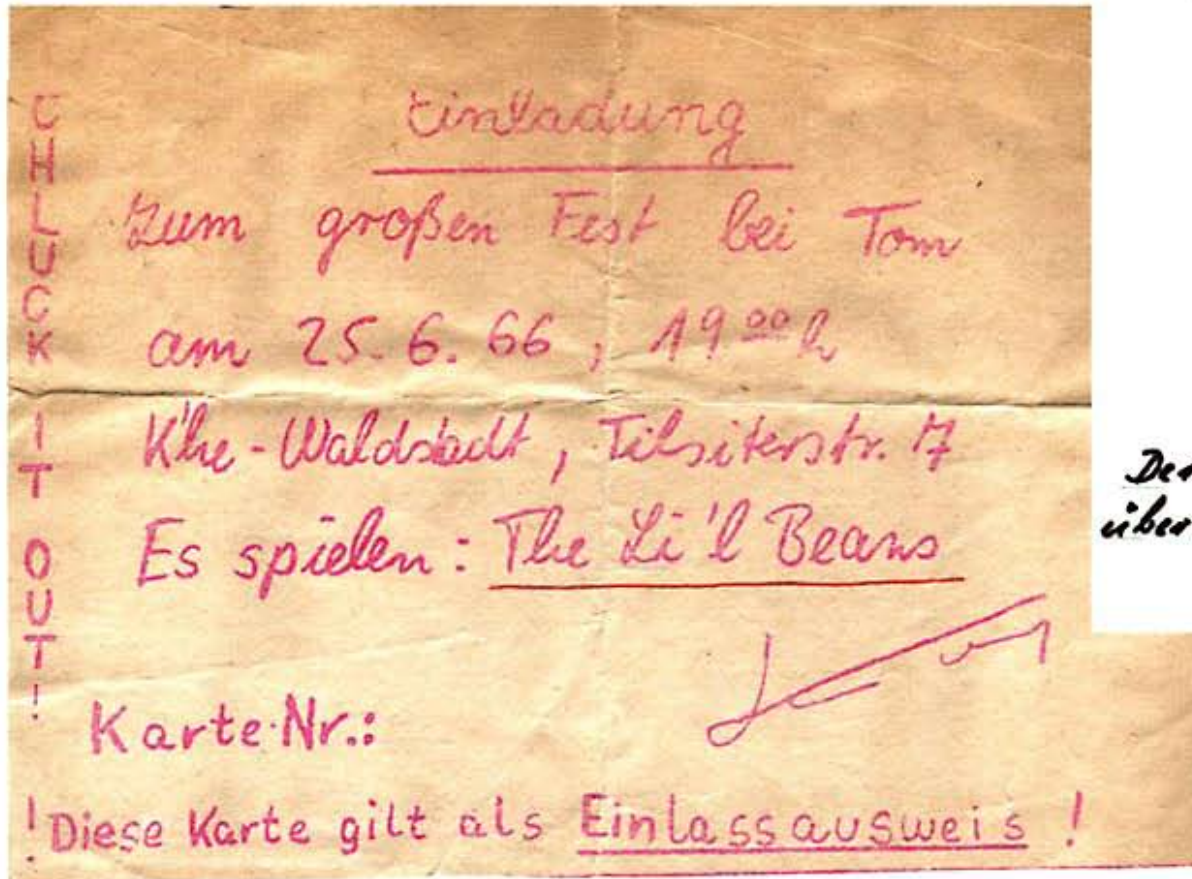 CHLUCK IT OUT!
Einladung
zum großen Fest bei Tom
am 25.6.66, 19⁰⁰h
K'he-Waldstadt, Tilsiterstr. 17
Es spielen: The Li'l Beans
Karte-Nr.:
! Diese Karte gilt als Einlassausweis !
Der
über